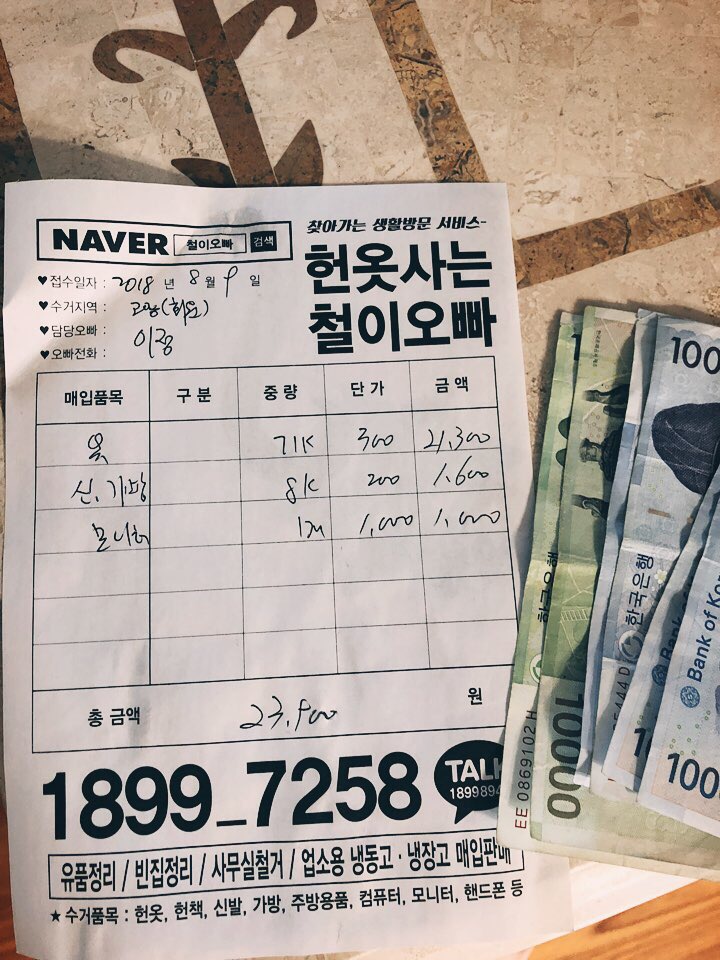 NAVER 철이오빠 검색
찾아가는 생활방문 서비스-
헌옷사는
철이오빠
♥접수일자 : 2018 년 8 월 9 일
♥수거지역 : 고양(화정)
♥담당오빠 :
♥오빠전화 :
매입품목 구분 중량 단가 금액
옷 71K 300 21,300
신.가방 8K 200 1,600
모니터 1개 1,000 1,000
총 금액 23,900 원
1899_7258
TALK
1899894
유품정리 / 빈집정리 / 사무실철거 / 업소용 냉동고·냉장고 매입판매
★수거품목 : 헌옷, 헌책, 신발, 가방, 주방용품, 컴퓨터, 모니터, 핸드폰 등
한국은행
EE 0869102 H
10000
100
한국은행
Bank of Ko
100